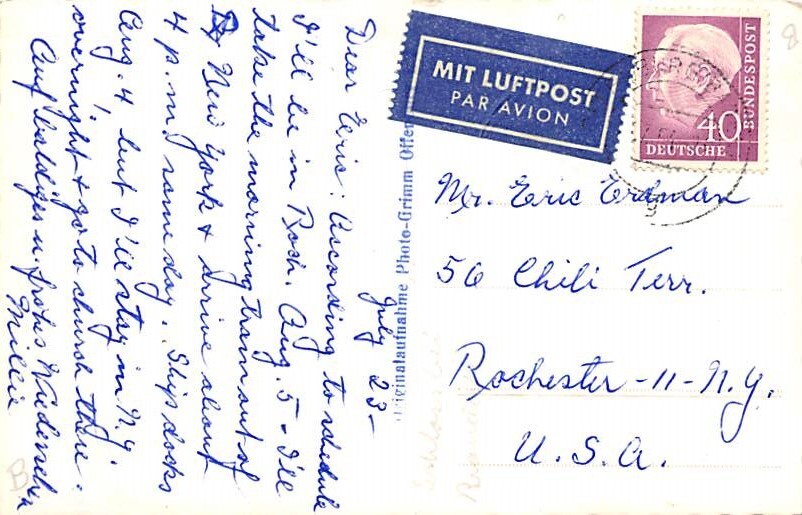 July 23-
Dear Eric: According to schedule
I'll be in Roch. Aug. 5 - I'll
take the morning train out of
New York & arrive about
4 p.m. same day. Ship docks
Aug. 4, but I'll stay in N.Y.
overnight & go to church there.
Auf baldiges u. frohes Wiedersehen
Millie
Originalaufnahme Photo-Grimm Offen
MIT LUFTPOST
PAR AVION
40
DEUTSCHE
BUNDESPOST
Mr. Eric Erdman
56 Chili Terr.
Rochester -11- N.Y.
U.S.A.
8
B